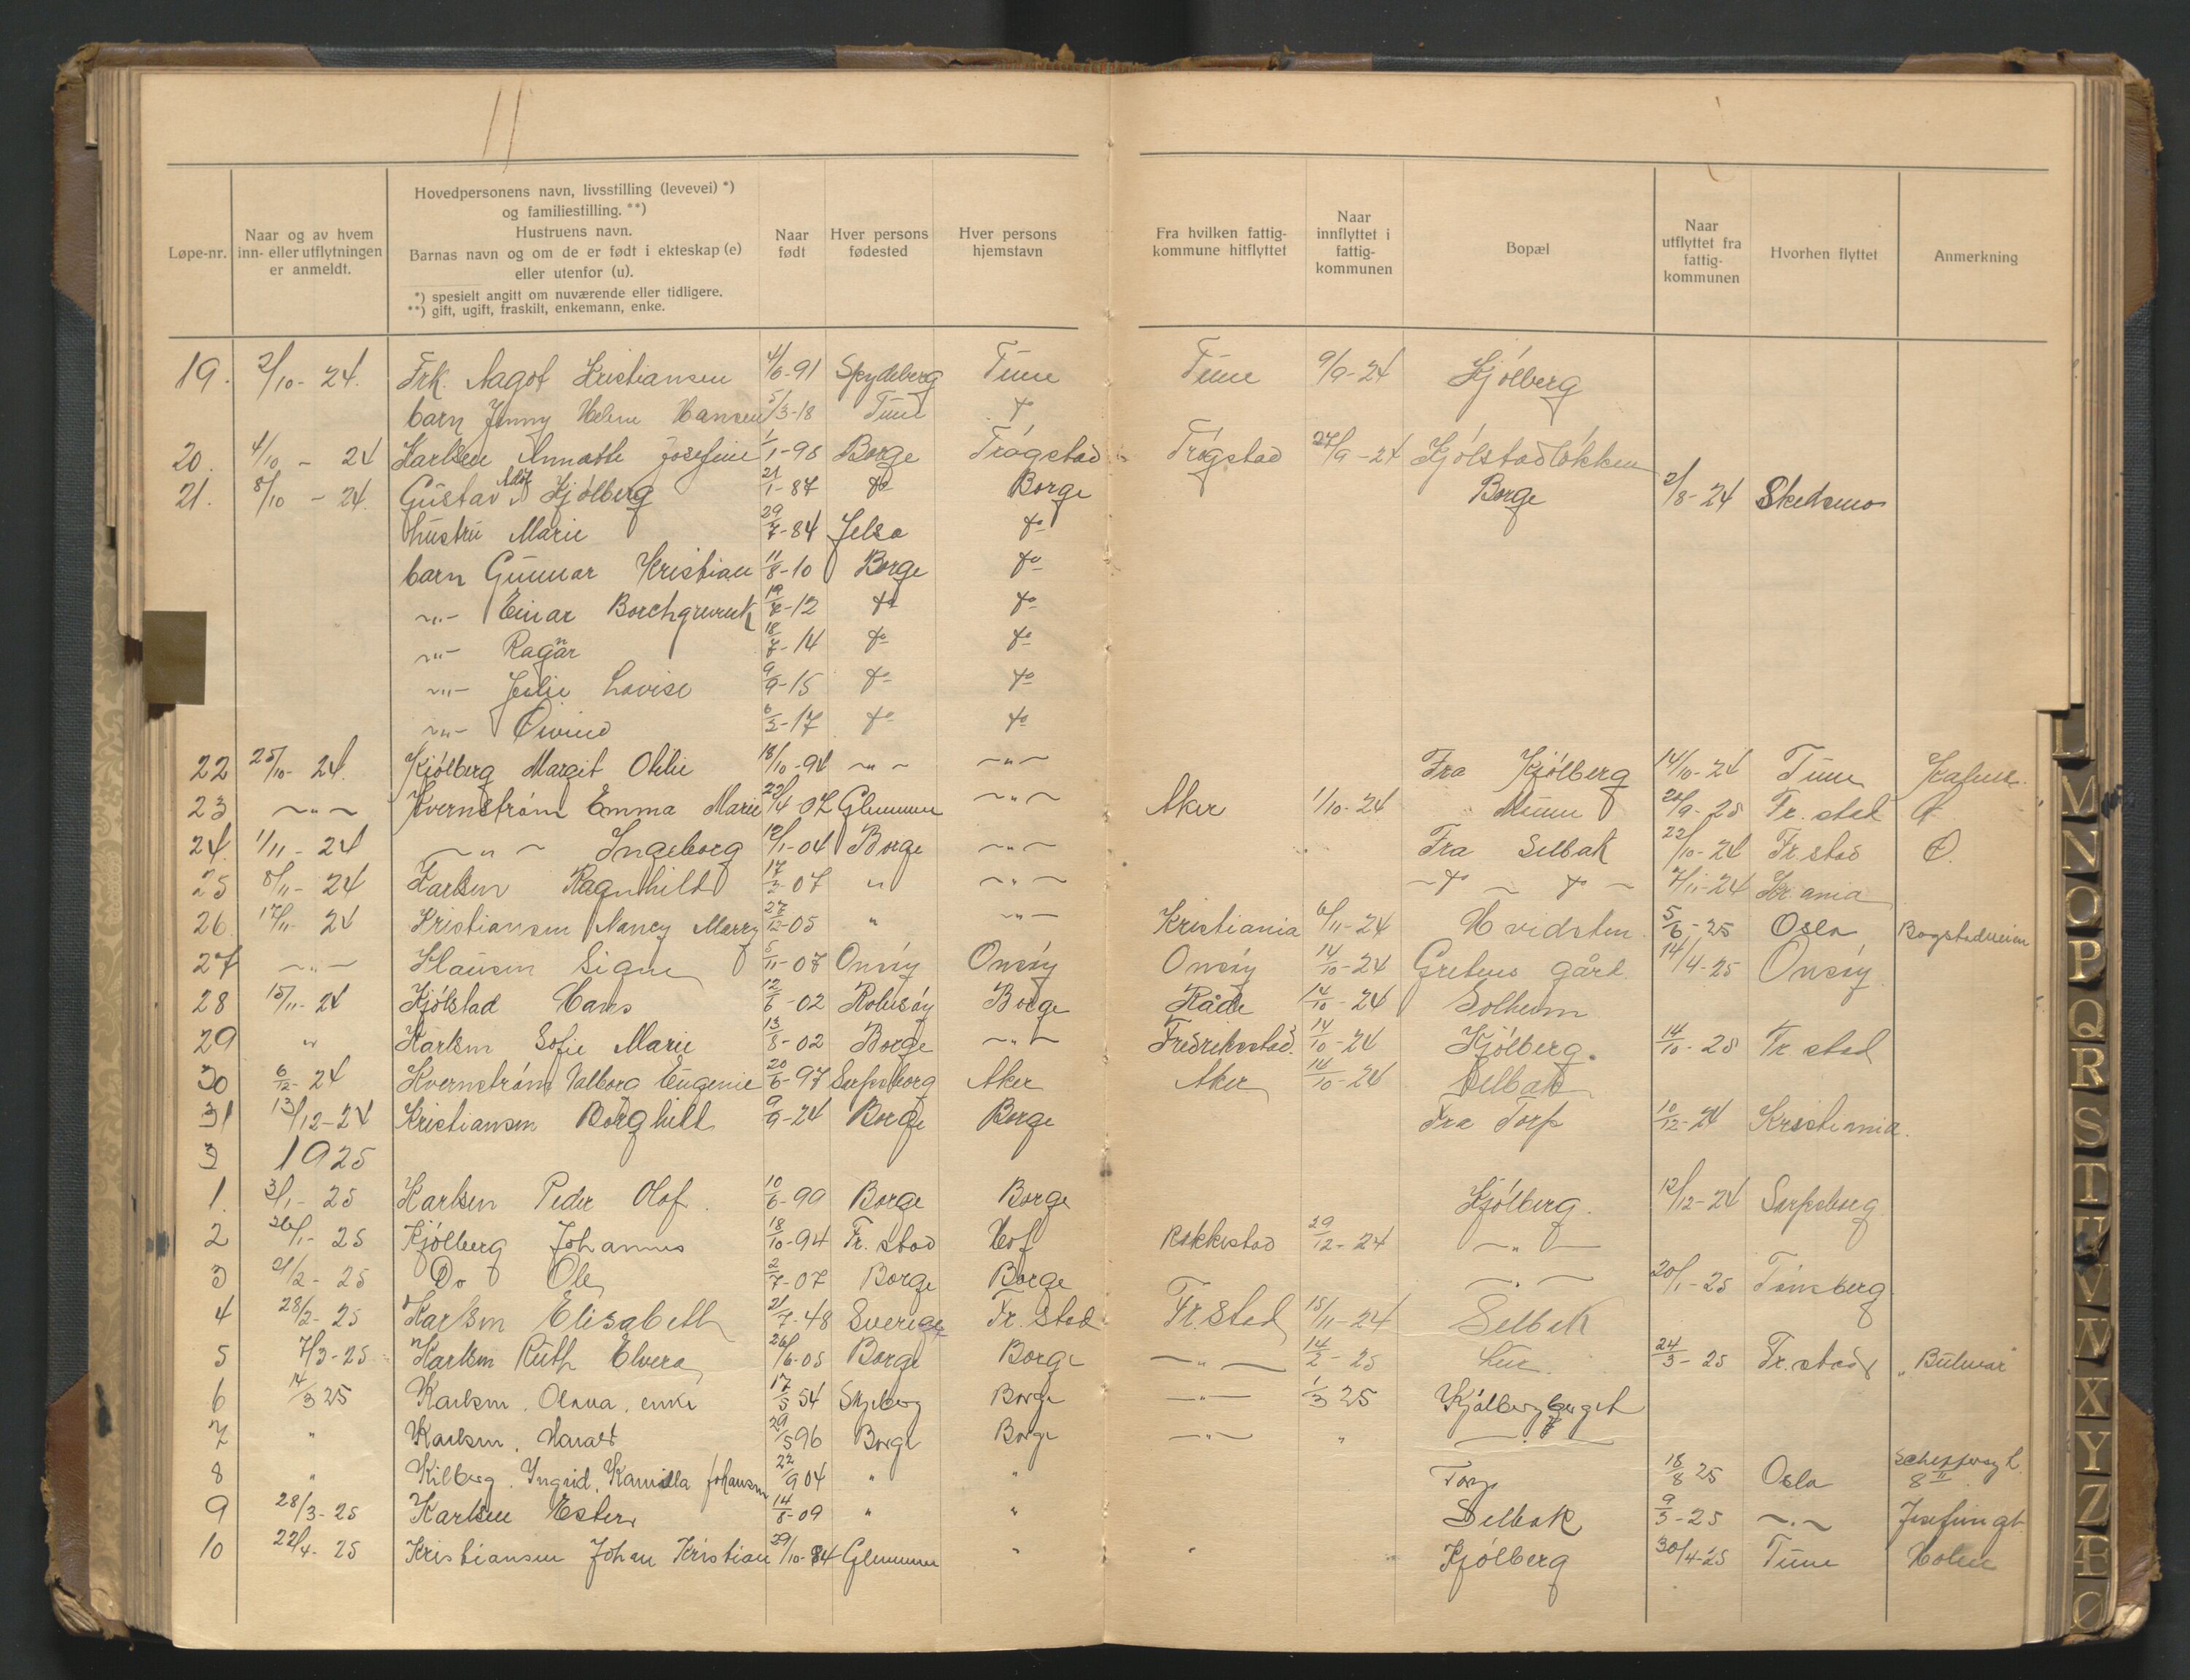 11
Løpe-nr.
Naar og av hvem inn- eller utflytningen er anmeldt.
Hovedpersonens navn, livsstilling (levevei) *) og familiestilling. **)
Hustruens navn.
Barnas navn og om de er født i ekteskap (e) eller utenfor (u).
*) spesielt angitt om nuværende eller tidligere.
**) gift, ugift, fraskilt, enkemann, enke.
Naar født
Hver persons fødested
Hver persons hjemstavn
Fra hvilken fattig-kommune hitflyttet
Naar innflyttet i fattig-kommunen
Bopæl
Naar utflyttet fra fattig-kommunen
Hvorhen flyttet
Anmerkning
19. 2/10-24. Frk. Aagot Kristiansen 4/6-91 Spydeberg Tune Tune 9/9-24 Kjölberg
barn Jenny Helene Hansen 5/3-18 Tune do
20. 4/10-24 Karlsen Annette Josefine 1/1-98 Borge Trögstad Trögstad 27/9-24 Kjölstadlökken
21. 8/10-24. Gustav Adolf Kjölberg 21/1-87 do Borge Borge 2/8-24 Skedsmo
hustru Marie 29/7-84 Jelsa do
barn Gunnar Kristian 11/8-10 Borge do
-"- Einar Borchgrevink 19/7-12 do do
-"- Ragnar 18/7-14 do do
-"- Julie Lovise 9/9-15 do do
-"- Öivind 6/3-17 do do
22 25/10-24. Kjölberg Margit Otilie 18/10-94 -"- -"- Fra Kjölberg 14/10-24 Tune
23 -"- Kvernström Emma Marie 22/4-07 Glemmen -"- Aker 1/10-24 22/9-25 Fr.stad
24. 1/11-24 -"- Ingeborg 12/1-04 Borge -"- Fra Selbak 22/10-24 Fr.stad
25 8/11-24 Karlsen Ragnhild 17/3-07 " -"- -do- do- 7/11-24 Kr.ania
26. 17/11-24 Kristiansen Nancy Merry 27/12-05 " -"- Kristiania 6/11-24 Hvidsten 5/6-25 Oslo Bogstadveien
27 -"- Hansen Signe 5/11-07 Onsöy Onsöy Onsöy 14/10-24 Gretens gård. 14/4-25 Onsöy
28 15/11-24 Kjölstad Hans 12/6-02 Rolvsöy Borge Råde 14/10-24 Solheim
29 " Karlsen Sofie Marie 13/8-02 Borge -"- Fredrikstad. 14/10-24 Kjölberg. 14/10-28 Fr.stad
30 6/12-24 Kvernström Valborg Eugenie 20/6-97 Sarpsborg Aker Aker 14/10-24 Selbak
31 13/12-24 Kristiansen Borghild 9/9-24 Borge Borge Fra Torp 10/12-24 Kristiania.
3 1925
1. 3/1-25 Karlsen Peder Olaf. 10/6-99 Borge Borge Kjölberg. 12/12-24 Sarpsborg.
2 26/1-25 Kjölberg Johannes 18/10-94 Fr.stad Hof Rakkestad 29/12-24 -"-
3 21/2-25 Do Ole 2/7-07 Borge Borge -"- 20/1-25 Tönsberg
4 28/2-25 Karlsen Elisabeth 21/7-48 Sverige Fr.stad Fr.stad 15/11-24 Selbak
5 7/3-25 Karlsen Ruth Elvera 26/6-05 Borge Borge -"- 14/2-25 Lur. 24/3-25 Fr.stad "Bulwar"
6 14/3 25 Karlsen, Olava, enke 17/5 54 Skjeberg Borge -"- 1/3 25 Kjölbergberget
7 " Karlsen, Harald 29/5 96 Borge Borge -"- " -"-
8 " Kilberg, Ingrid, Kamilla Johansen 22/9 04 " " Torp 18/8 25 Oslo Scheffersgt. 8 II
9 28/3-25 Karlsen Ester 14/8-09 " " Selbak 9/3-25 -"- Josefinegt.
10 22/4-25 Kristiansen Johan Kristian 29/10-84 Glemmen " " Kjölberg 30/4-25 Tune Holen
L
M
N
O
P
Q
R
S
T
U
V
W
X
Y
Z
Æ
Ø